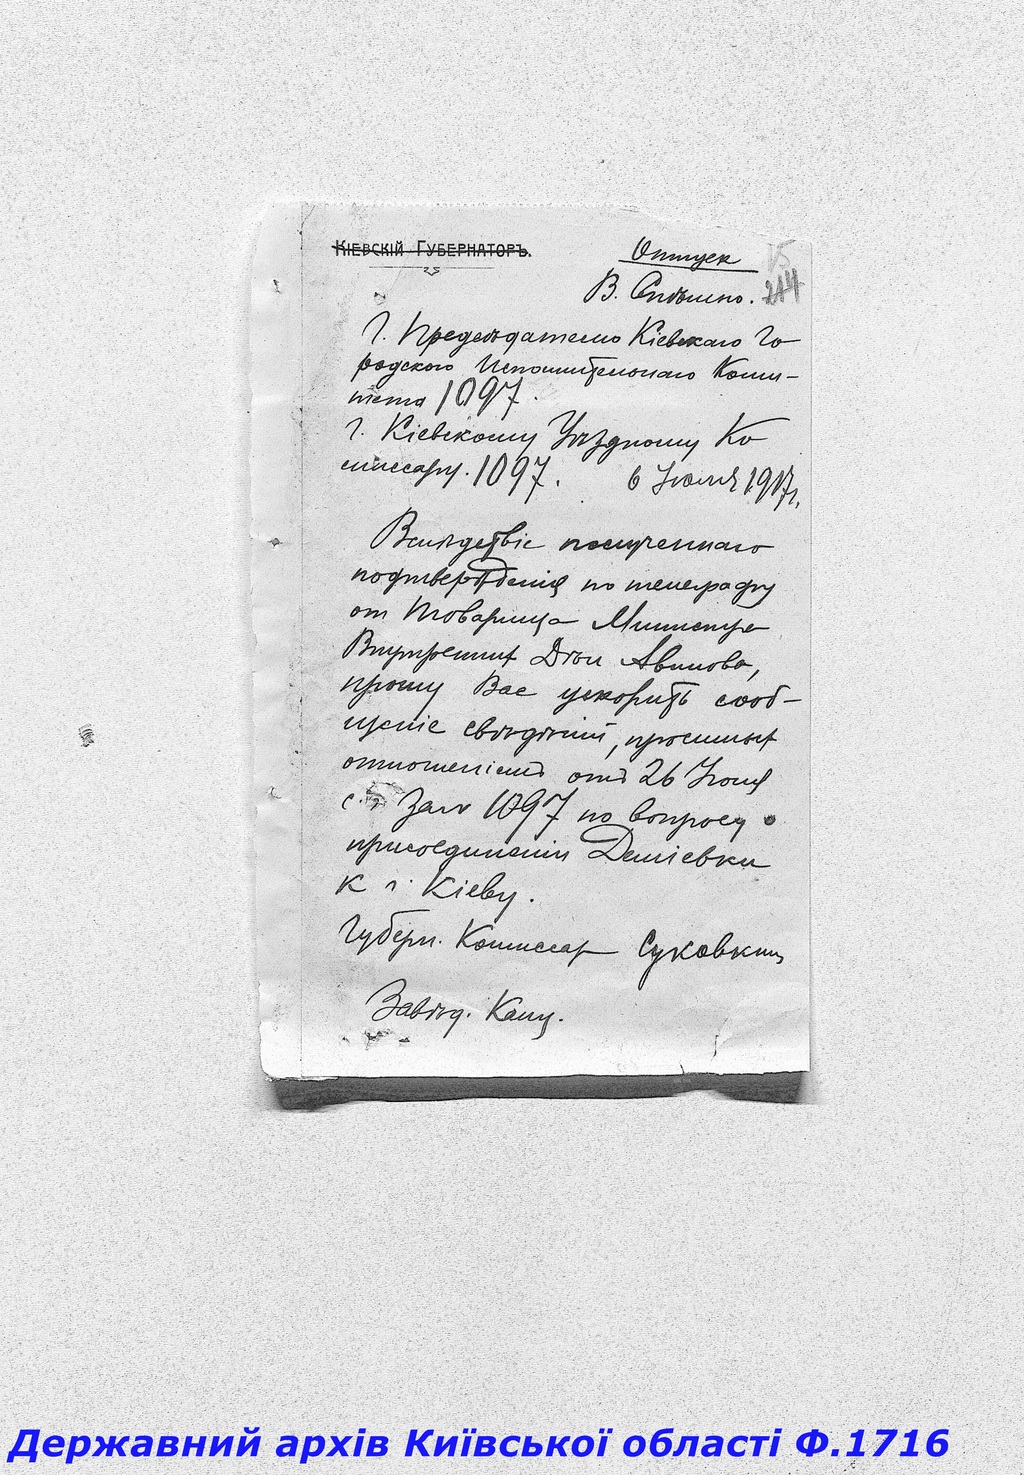 Кіевскій Губернаторъ.
Отпуск
В. Спѣшно.
244
Г. Предсѣдателю Кіевскаго Го
родского Исполнительнаго Коми-
тета 1097.
г. Кіевскому Уѣздному Ко
миссару. 1097. 6 Іюля 1917 г.
Вслѣдствіе полученнаго
подтвержденія по телеграфу
от Товарища Министра
Внутренних Дѣл Авинова,
прошу Вас ускорить сооб-
щеніе свѣдѣній, просимых
отношеніем от 26 Іюня
с. г. за № 1097 по вопросу о
присоединеніи Деміевки
к г. Кіеву.
Губерн. Комиссар Суковкин
Завѣд. Канц.
Державний архів Київської області Ф.1716